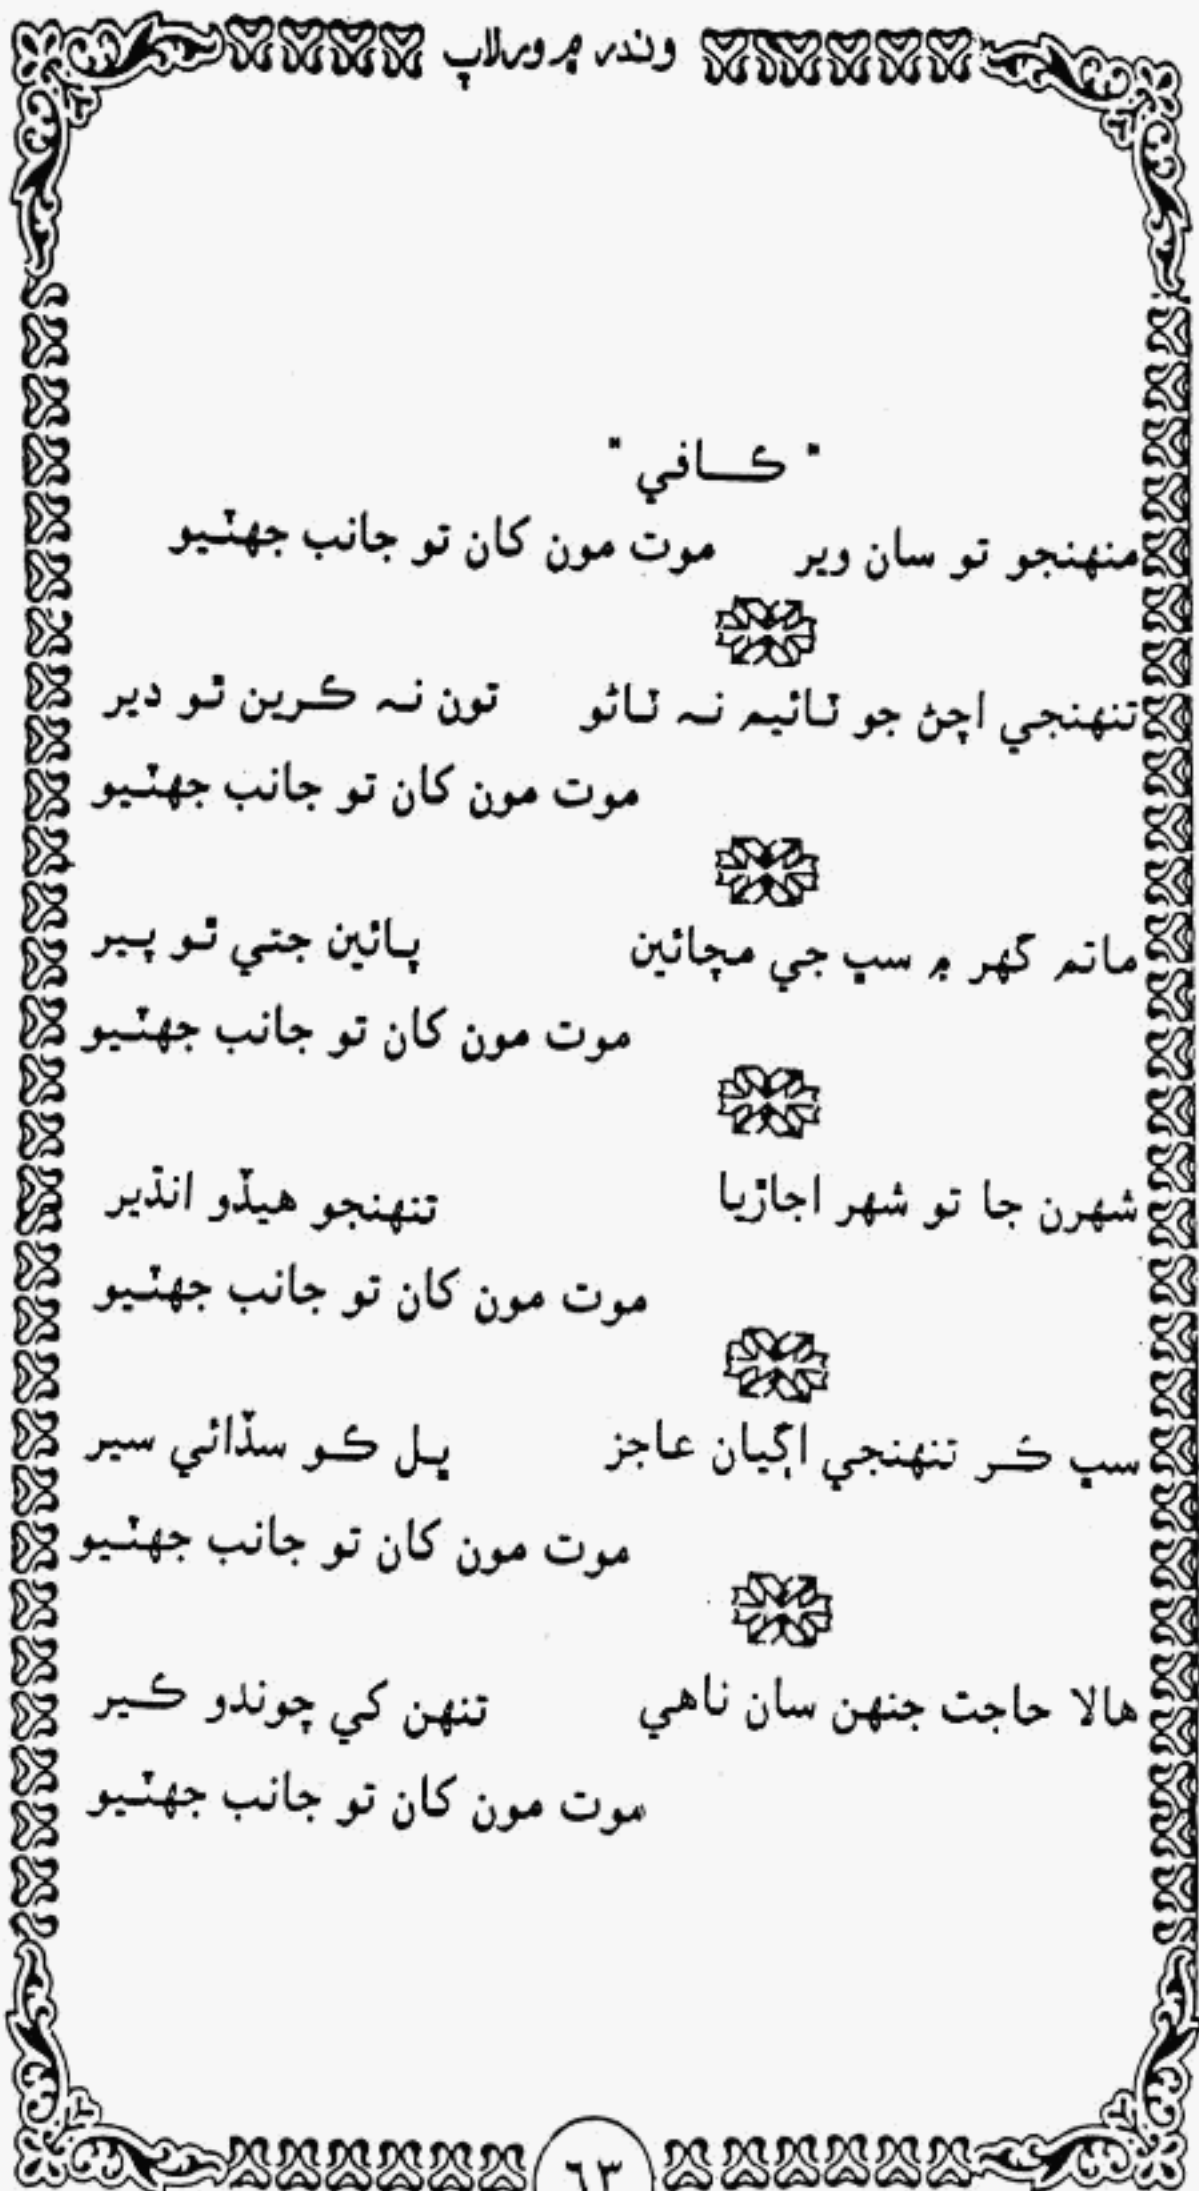 وندر ۾ ورلاپ
" ڪافي "
منهنجو تو سان وير موت مون کان تو جانب جھٽيو
تنهنجي اچڻ جو ٽائيم نہ ٽاڻو تون نہ ڪرين ٿو دير
موت مون کان تو جانب جھٽيو
ماتم گهر ۾ سڀ جي مچائين پائين جتي ٿو پير
موت مون کان تو جانب جھٽيو
شهرن جا تو شهر اجاڙيا تنهنجو هيڏو انڌير
موت مون کان تو جانب جھٽيو
سڀ ڪر تنهنجي اڳيان عاجز ڀل ڪو سڏائي سير
موت مون کان تو جانب جھٽيو
هالا حاجت جنهن سان ناهي تنهن کي چوندو ڪير
موت مون کان تو جانب جھٽيو
٦٣